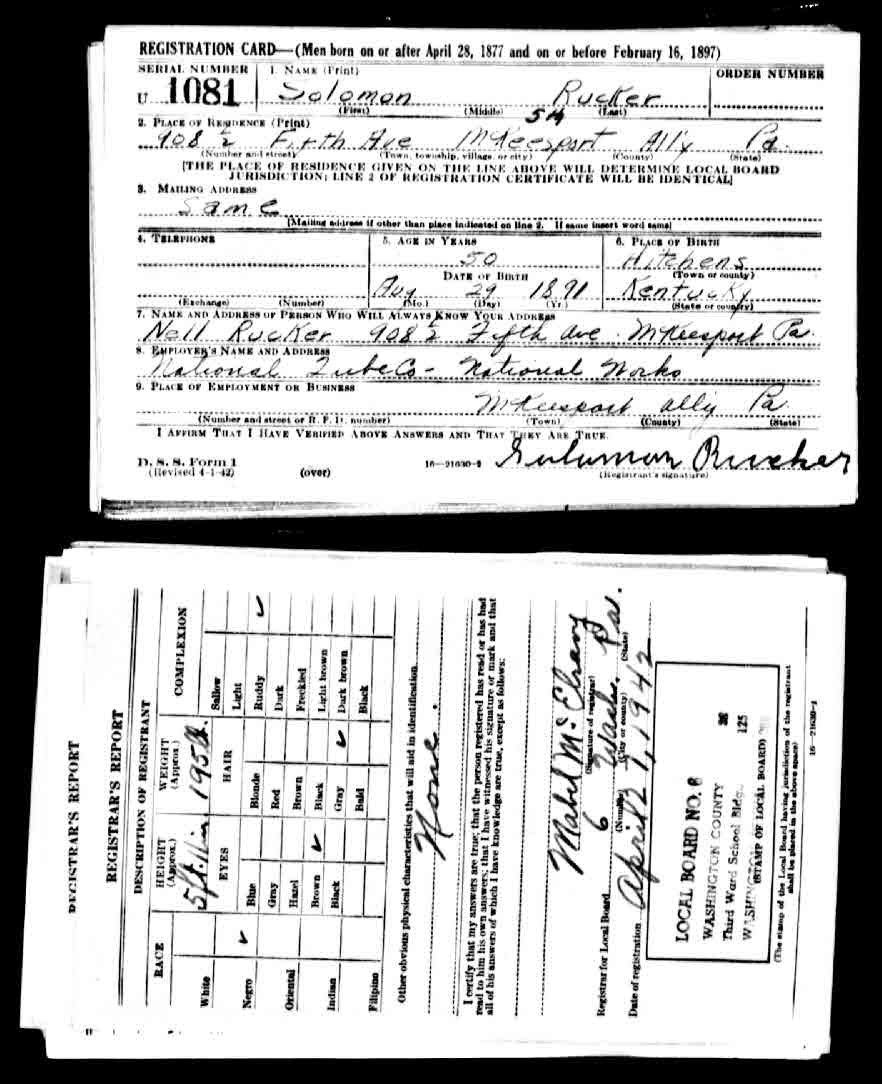 REGISTRATION CARD—(Men born on or after April 28, 1877 and on or before February 16, 1897)
SERIAL NUMBER 1. NAME (Print) ORDER NUMBER
U 1081 Solomon Rucker
(First) (Middle) (Last)
2. PLACE OF RESIDENCE (Print)
908 ½ Fifth Ave McKeesport Ally Pa.
(Number and street) (Town, township, village, or city) (County) (State)
[THE PLACE OF RESIDENCE GIVEN ON THE LINE ABOVE WILL DETERMINE LOCAL BOARD
JURISDICTION; LINE 2 OF REGISTRATION CERTIFICATE WILL BE IDENTICAL]
3. MAILING ADDRESS
Same
[Mailing address if other than place indicated on line 2. If same insert word same]
4. TELEPHONE 5. AGE IN YEARS 6. PLACE OF BIRTH
50 Hitchens
DATE OF BIRTH (Town or county)
Aug 29 1891 Kentucky
(Exchange) (Number) (Mo.) (Day) (Yr.) (State or country)
7. NAME AND ADDRESS OF PERSON WHO WILL ALWAYS KNOW YOUR ADDRESS
Nell Rucker 908 ½ Fifth Ave. McKeesport Pa.
8. EMPLOYER'S NAME AND ADDRESS
National Tube Co - National Works
9. PLACE OF EMPLOYMENT OR BUSINESS
McKeesport Ally Pa.
(Number and street or R. F. D. number) (Town) (County) (State)
I AFFIRM THAT I HAVE VERIFIED ABOVE ANSWERS AND THAT THEY ARE TRUE.
D. S. S. Form 1
(Revised 4-1-42) (over) 16—21630-2 Solomon Rucker
(Registrant's signature)
REGISTRAR'S REPORT
REGISTRAR'S REPORT
DESCRIPTION OF REGISTRANT
RACE HEIGHT (Approx.) WEIGHT (Approx.) COMPLEXION
5 ft. 195
EYES HAIR
White Blue Blonde Sallow
Light
Negro ✓ Gray Red Ruddy ✓
Dark
Oriental Hazel Brown Freckled
Indian Brown ✓ Black Light brown
Black Gray ✓ Dark brown
Filipino Bald Black
Other obvious physical characteristics that will aid in identification
None.
I certify that my answers are true; that the person registered has read or has had
read to him his own answers; that I have witnessed his signature or mark and that
all of his answers of which I have knowledge are true, except as follows:
Mabel
(Signature of registrar)
Registrar for Local Board 6 Wash. Pa.
(Number) (City or county) (State)
Date of registration April 27, 1942
LOCAL BOARD NO. 6
WASHINGTON COUNTY
125
Third Ward School Bldg.
(STAMP OF LOCAL BOARD)
(The stamp of the Local Board having jurisdiction of the registrant
shall be placed in the above space)
16—21630-1